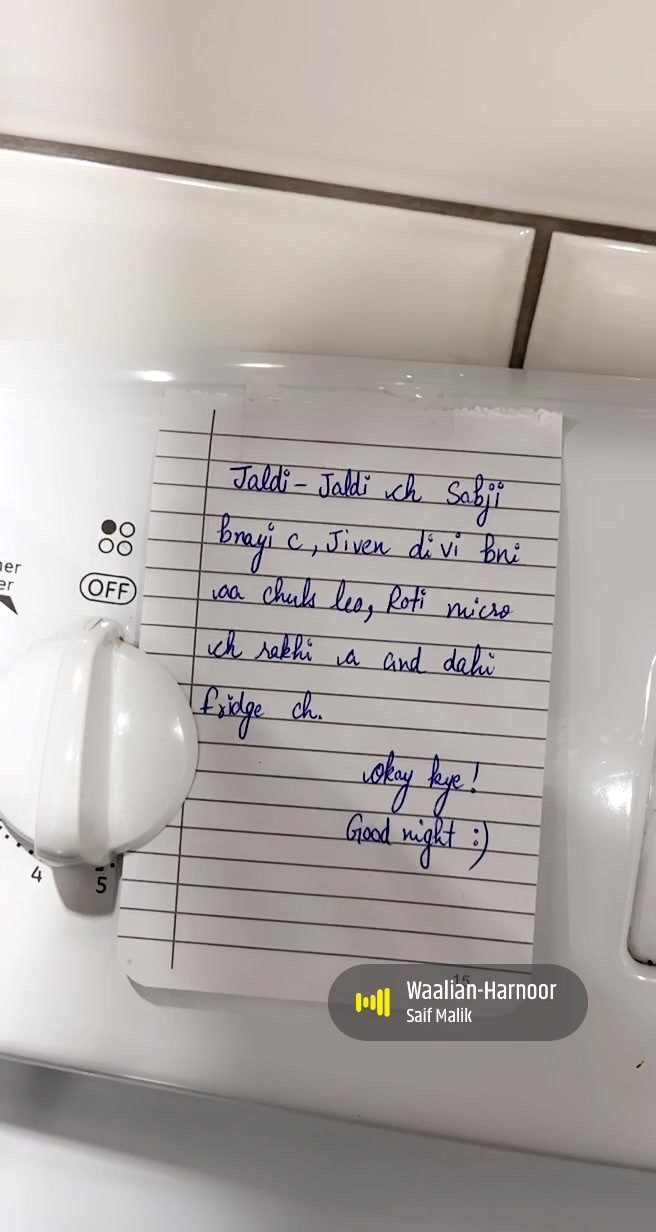 Jaldi-Jaldi ch Sabji
bnayi c, Jiven di vi bni
aa chak leo, Roti micro
ch rakhi a and dahi
fridge ch.
Okay bye!
Good night :)
OFF
er
4
5
15
Waalian-Harnoor
Saif Malik